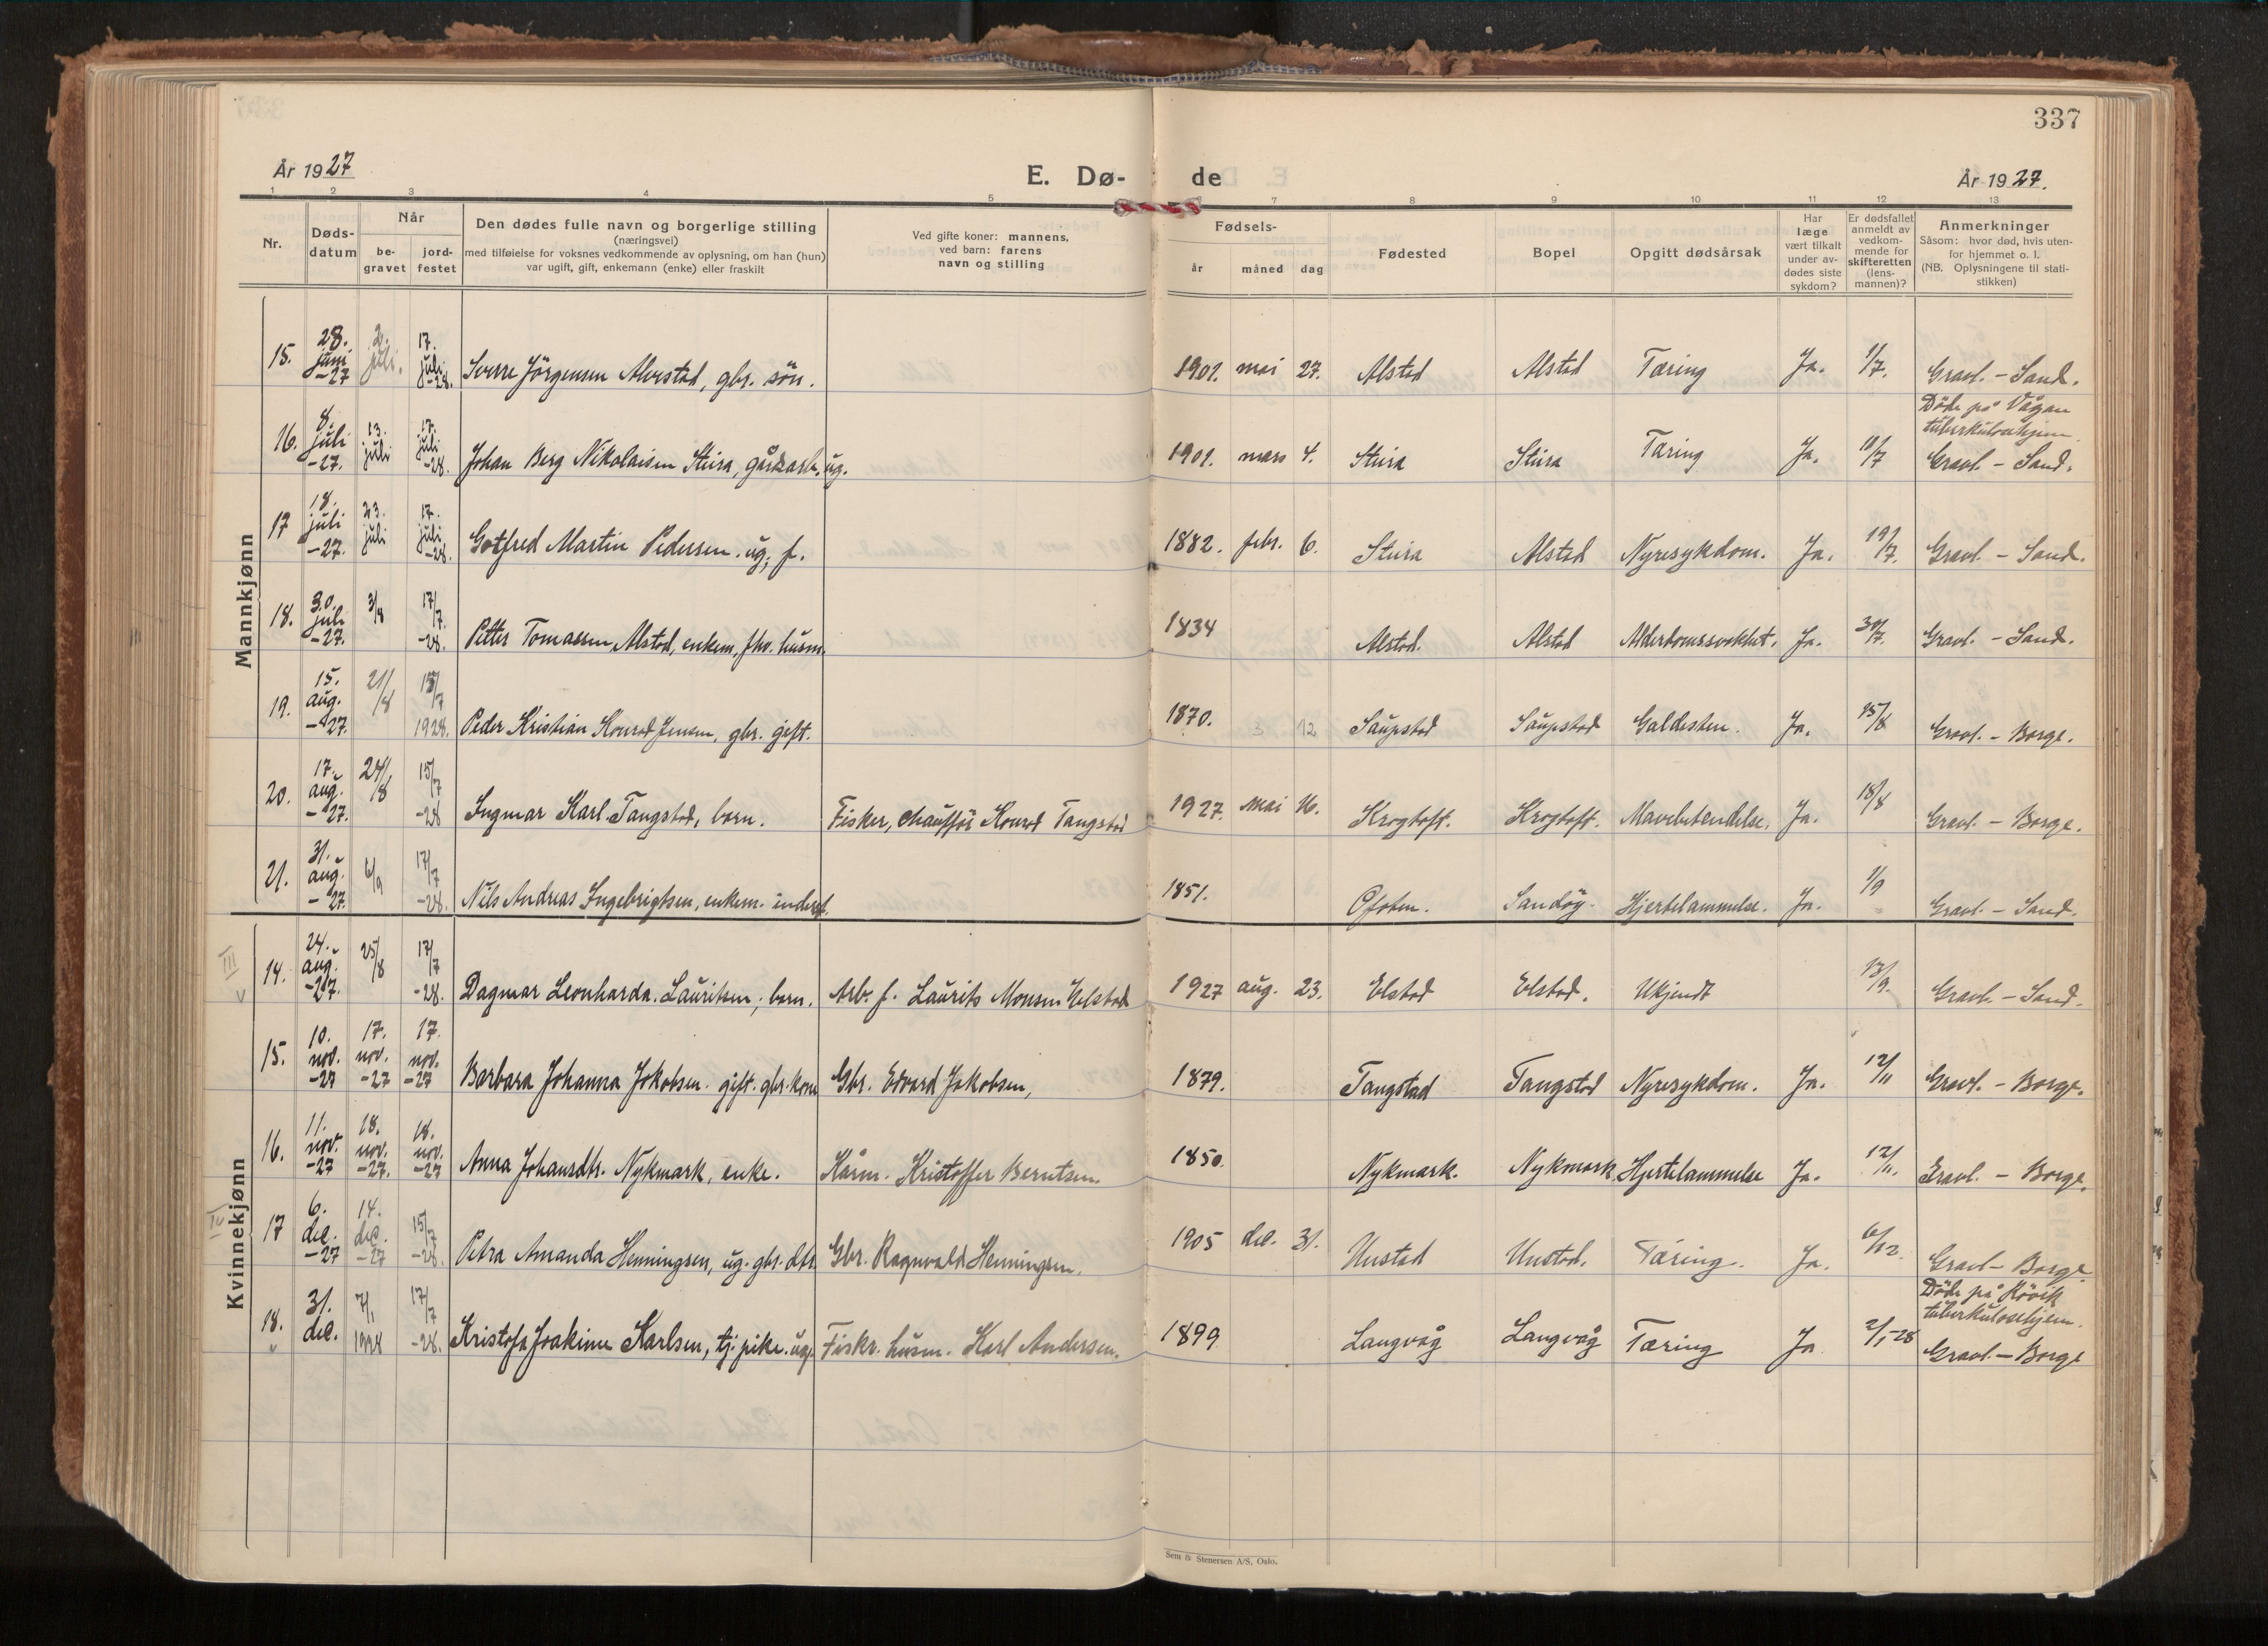 337
År 1927
E. Dø-
de
År 1927.
1 2 3 4 5 6 7 8 9 10 11 12 13
Nr.
Døds-
datum
Når
be-
gravet
jord-
festet
Den dødes fulle navn og borgerlige stilling
(næringsvei)
med tilføielse for voksnes vedkommende av oplysning, om han (hun)
var ugift, gift, enkemann (enke) eller fraskilt
Ved gifte koner: mannens,
ved barn: farens
navn og stilling
Fødsels-
år måned dag
Fødested
Bopel
Opgitt dødsårsak
Har
læge
vært tilkalt
under av-
dødes siste
sykdom?
Er dødsfallet
anmeldt av
vedkom-
mende for
skifteretten
(lens-
mannen)?
Anmerkninger
Såsom: hvor død, hvis uten-
for hjemmet o. l.
(NB. Oplysningene til stati-
stikken)
Mannkjønn
15. 28. juni -27 2. juli. 17. juli -28. Sverre Jörgensen Alvestad, gbr. sön. 1901. mai 27. Alstad Alstad Tæring Ja. 1/7. Gravl. - Sand.
Döde på Vågan
tuberkulosehjem.
16. 8. juli -27. 13. juli 17. juli -28. Johan Berg Nikolaisen Stura, gårdsarb. ug. 1901. mars 4. Stura Stura Tæring Ja. 10/7 Gravl. - Sand.
17 18. juli -27. 23. juli 17. juli -28. Gotfred Martin Pedersen. ug; f. 1882. febr. 6. Stura Alstad Nyresykdom. Ja. 19/7. Gravl. - Sand.
18. 30. juli -27. 3/8 17/7. -28. Petter Tomassen Alstad, enkem. fhv. husm. 1834 Alstad. Alstad Alderdomssvakhet. Ja. 30/7. Gravl. - Sand.
19. 15. aug. -27. 21/8 15/7 1928. Peder Kristian Konrad Jensen, gbr. gift. 1870. 3 12 Saupstad Saupstad Galdesten. Ja. 25/8 Gravl. - Borge.
20. 17. aug. -27. 24/8 15/7 -28 Ingmar Karl Tangstad, barn. Fisker, chaufför Konrad Tangstad 1927. mai 16. Krogtoft. Krogtoft. Mavebetendelse. Ja. 18/8 Gravl. - Borge.
21. 31. aug. -27. 6/9 17/7 -28. Nils Andreas Ingebrigtsen, enkem. inderst. 1851. Ofoten. Sandöy. Hjertelammelse. Ja. 1/9 Gravl. - Sand.
Kvinnekjønn
III
14. 24. aug. -27. 25/8 17/7 -28. Dagmar Leonharda Lauritsen, barn. Arb. f. Laurits Monsen Elstad 1927 aug. 23. Elstad Elstad. Ukjendt 13/9. Gravl. - Sand.
15. 10. nov. -27 17. nov. -27 17. nov. -27 Barbara Johanna Jakobsen. gift. gbr. kone Gbr. Edvard Jakobsen, 1879. Tangstad Tangstad Nyresykdom. Ja. 12/11 Gravl. - Borge.
16. 11. nov. -27 18. nov. -27. 18. nov. -27 Anna Johansdtr. Nykmark, enke. Kårm. Kristoffer Berntsen. 1850. Nykmark. Nykmark. Hjertelammelse Ja. 12/11. Gravl. - Borge.
IV
17 6. dec. -27 14. dec. -27 15/7 -28. Petra Amanda Henningsen, ug. gbr. dtr. Gbr. Ragnvald Henningsen. 1905 dec. 31. Unstad Unstad. Tæring. Ja. 6/12. Gravl - Borge.
Döde på Rövik
tuberkulosehjem.
18. 31. dec. 7/1 1928 17/7 -28. Kristofa Joakime Karlsen, tj. pike. ug. Fiskr. husm. Karl Andersen. 1899 Langvåg Langvåg Tæring Ja 2/1-28 Gravl. - Borge
Sem & Stenersen A/S, Oslo.